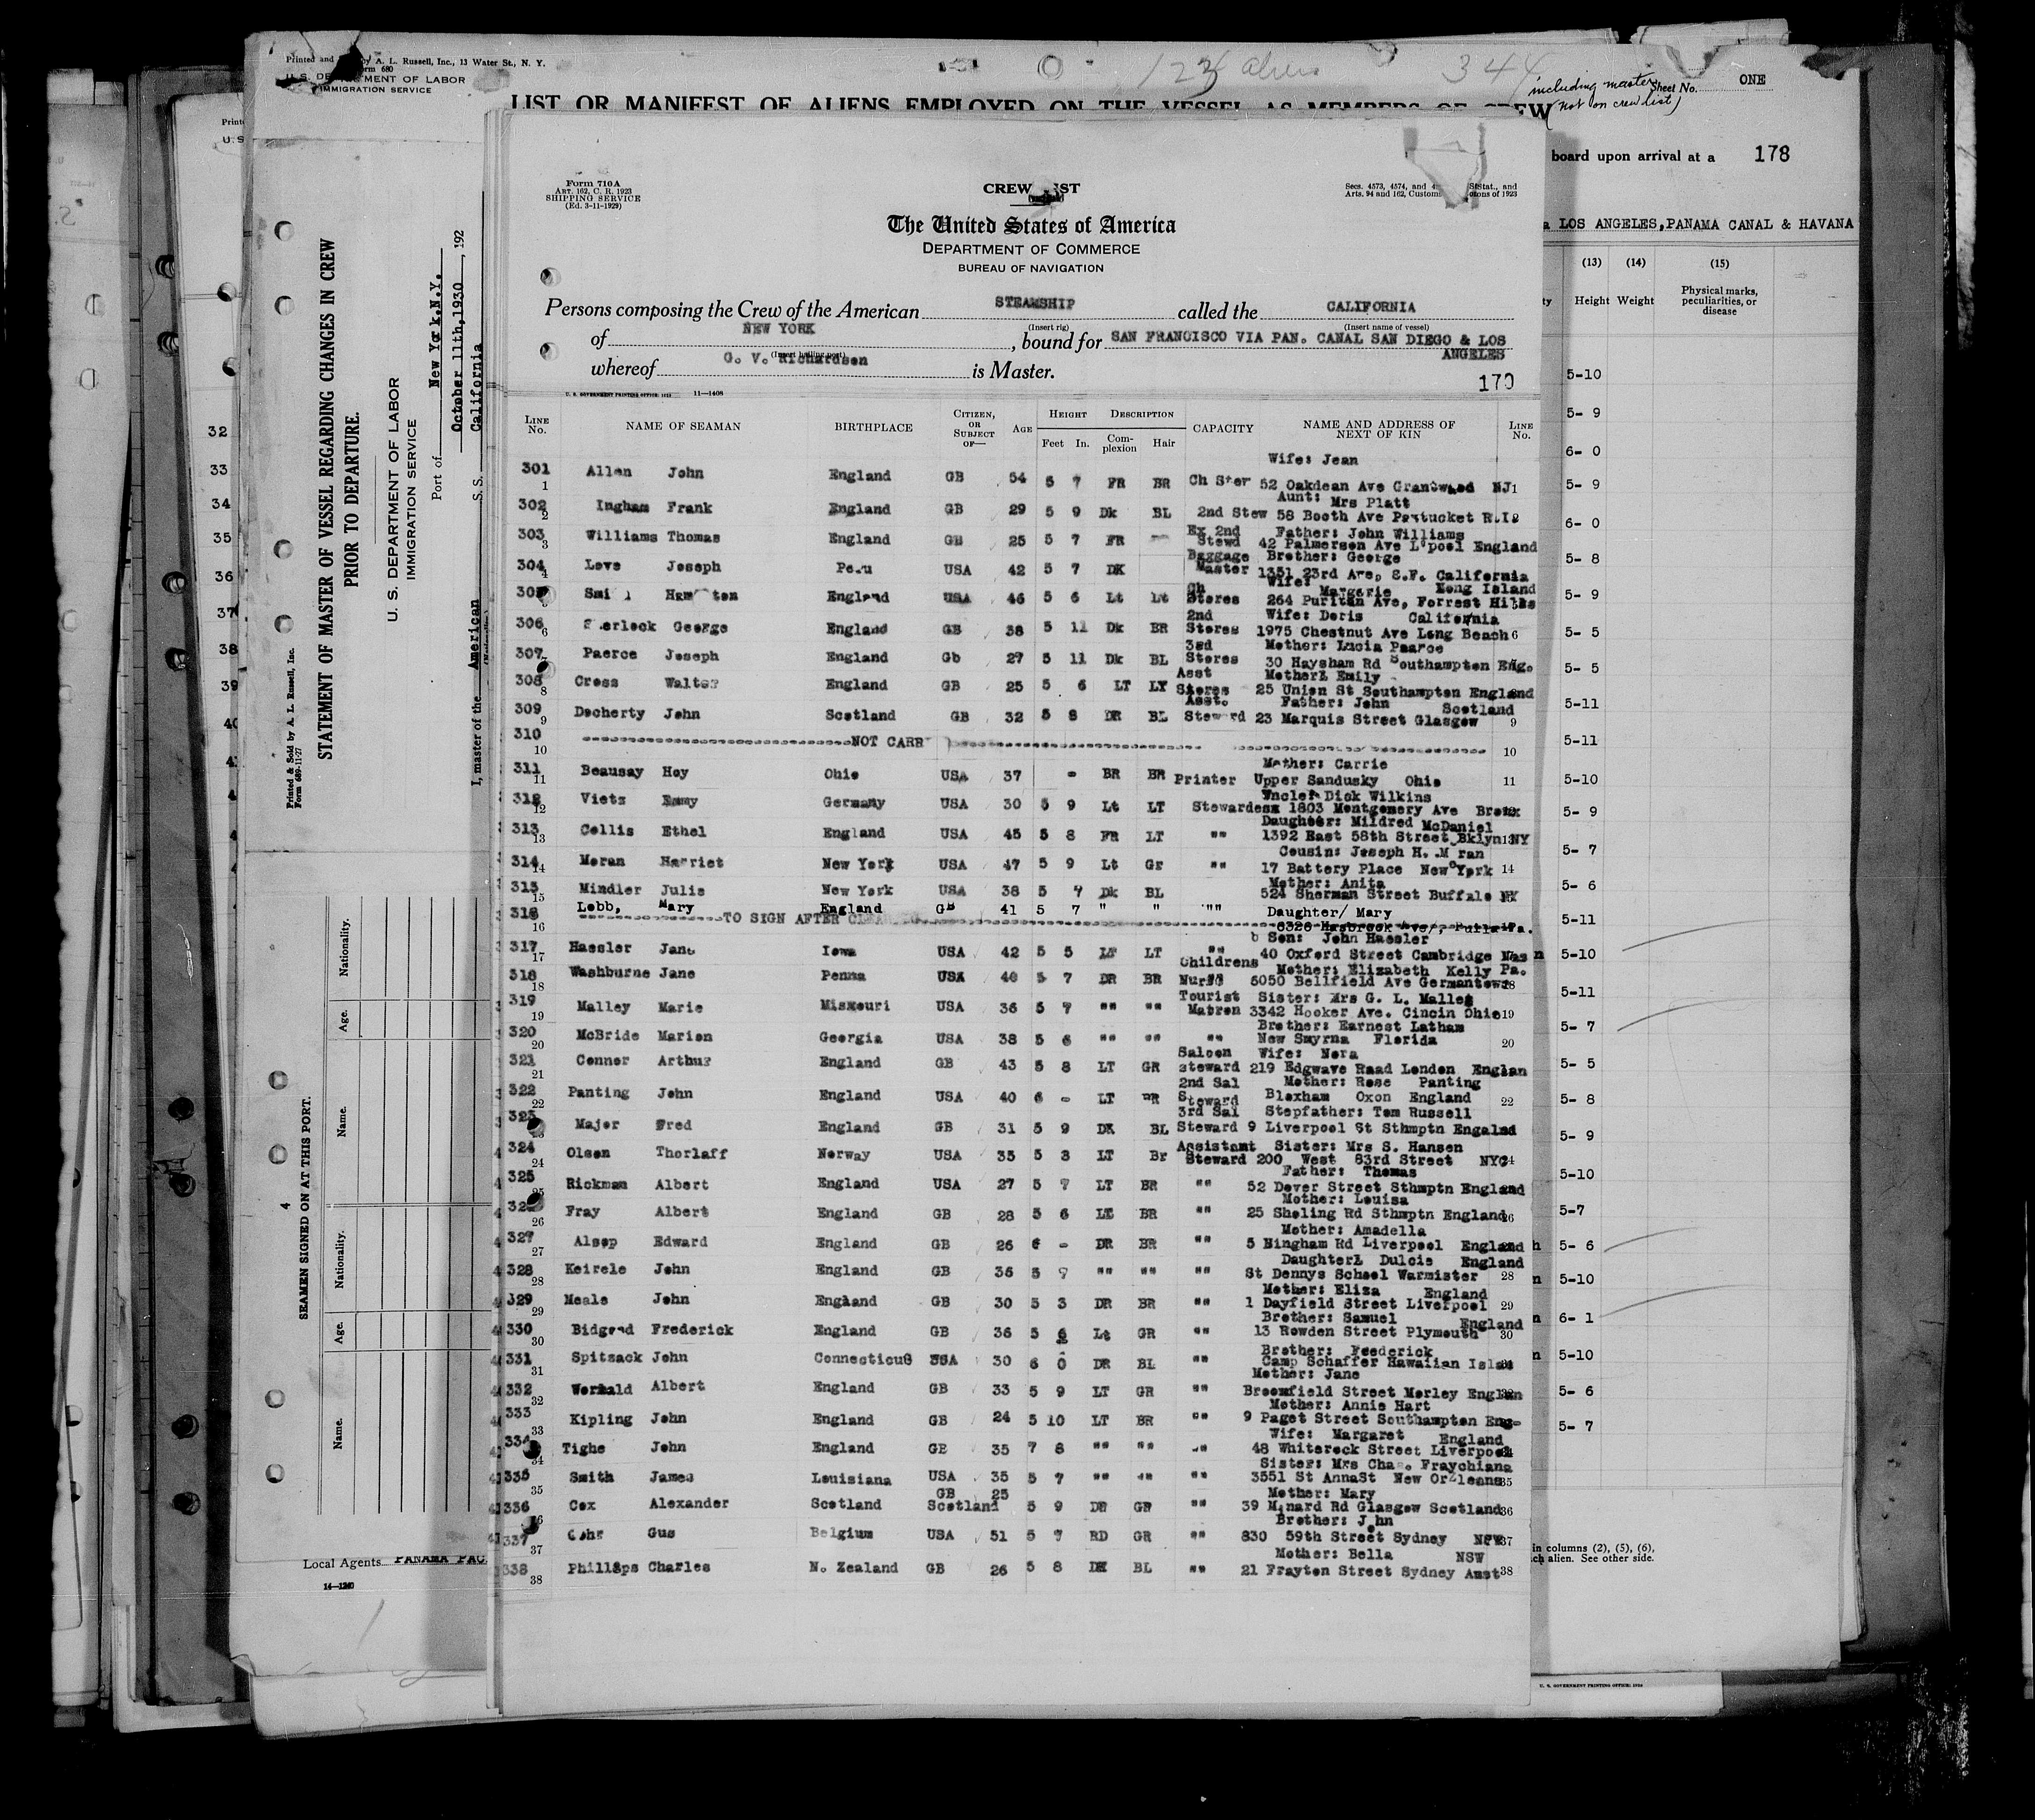 Printed and by A. L. Russell, Inc., 13 Water St., N. Y.
Form 680
U. S. DEPARTMENT OF LABOR
IMMIGRATION SERVICE
123 aliens
344
including master
(not on crew list)
Sheet No. ONE
LIST OR MANIFEST OF ALIENS EMPLOYED ON THE VESSEL AS MEMBERS OF CREW
board upon arrival at a 178
LOS ANGELES, PANAMA CANAL & HAVANA
(13) (14) (15)
Height Weight Physical marks, peculiarities, or disease
5-10
5- 9
6- 0
5- 9
6- 0
5- 8
5- 9
5- 5
5- 5
5-11
5-11
5-10
5- 9
5- 7
5- 6
5-11
5-10
5-11
5- 7
5- 5
5- 8
5- 9
5-10
5-7
5- 6
5-10
6- 1
5-10
5- 6
5- 7
in columns (2), (5), (6),
ch alien. See other side.
U. S. GOVERNMENT PRINTING OFFICE: 1929
32
33
34
35
36
37
38
39
STATEMENT OF MASTER OF VESSEL REGARDING CHANGES IN CREW
PRIOR TO DEPARTURE.
U. S. DEPARTMENT OF LABOR
IMMIGRATION SERVICE
Port of New York.N.Y.
October 11th,1930, 192
S. S. California
I, master of the American
Printed & Sold by A. L. Russell, Inc.
Form 689-11-27
4
SEAMEN SIGNED ON AT THIS PORT.
Name. Age. Nationality. Name. Age. Nationality.
Local Agents PANAMA PAC.
14—1240
Form 710A
ART. 162, C. R. 1923
SHIPPING SERVICE
(Ed. 3-11-1929)
CREW LIST
Secs. 4573, 4574, and Stat., and
Arts. 94 and 162, Customs of 1923
The United States of America
DEPARTMENT OF COMMERCE
BUREAU OF NAVIGATION
Persons composing the Crew of the American STEAMSHIP called the CALIFORNIA
(Insert rig) (Insert name of vessel)
of NEW YORK, bound for SAN FRANCISCO VIA PAN. CANAL SAN DIEGO & LOS
ANGELES
(Insert hailing port)
whereof G. V. Richardson is Master.
170
U. S. GOVERNMENT PRINTING OFFICE: 1929 11—1408
LINE No. NAME OF SEAMAN BIRTHPLACE CITIZEN, OR SUBJECT OF— AGE HEIGHT Feet In. DESCRIPTION Complexion Hair CAPACITY NAME AND ADDRESS OF NEXT OF KIN LINE No.
Wife: Jean
301 1 Allan John England GB 54 5 7 FR BR Ch Ster 52 Oakdean Ave Grantwood NJ 1
Aunt: Mrs Platt
302 2 Ingham Frank England GB 29 5 9 Dk BL 2nd Stew 58 Booth Ave Pawtucket R.I
Ex 2nd Father: John Williams
303 3 Williams Thomas England GB 25 5 7 FR Stewd 42 Palmerson Ave L'pool England
Baggage Brother: George
304 4 Love Joseph Peru USA 42 5 7 DK Master 1351 23rd Ave, S.F. California
Ch Wife: Margerie Long Island
305 Smi Ham ton England USA 46 5 6 Lt Lt Stores 264 Puritan Ave, Forrest Hills
2nd Wife: Doris California
306 6 Sherlock George England GB 38 5 11 Dk BR Stores 1975 Chestnut Ave Long Beach 6
3rd Mother: Lucia Paarce
307 Paerce Joseph England Gb 27 5 11 Dk BL Stores 30 Haysham Rd Southampton Eng.
Asst Mother: Emily
308 8 Cross Walter England GB 25 5 6 LT LY Stores 25 Union St Southampton England
Asst. Father: John Scotland
309 9 Docherty John Scotland GB 32 5 8 DR BL Steward 23 Marquis Street Glasgow 9
310 10 NOT CARR 10
Mother: Carrie
311 11 Beausay Hoy Ohio USA 37 - BR BR Printer Upper Sandusky Ohio 11
Uncle: Dick Wilkins
312 12 Vietz Emmy Germany USA 30 5 9 Lt LT Stewardess 1803 Montgomery Ave Bronx
Daughter: Mildred McDaniel
313 13 Collis Ethel England USA 45 5 8 FR LT "" 1392 East 58th Street Bklyn NY 13
Cousin: Joseph H. Moran
314 14 Moran Harriet New York USA 47 5 9 Lt Gr "" 17 Battery Place New York 14
Mother: Anita
315 15 Mindler Julie New York USA 38 5 7 Dk BL 524 Sherman Street Buffalo NY
316 16 Lobb, Mary England GB 41 5 7 " " "" Daughter/ Mary
TO SIGN AFTER 6326 Hasbrook Ave/, Phila Pa.
Son: John Haesler
317 17 Haesler Jane Iowa USA 42 5 5 LT LT "" 40 Oxford Street Cambridge Mas
Childrens Mother: Elizabeth Kelly Pa.
318 18 Washburne Jane Penna USA 40 5 7 DR BR Nurse 5050 Bellfield Ave Germantown
Tourist Sister: Mrs G. L. Malley
319 19 Malley Marie Missouri USA 36 5 7 "" "" Matron 3342 Hooker Ave. Cincin Ohio 19
Brother: Earnest Latham
320 20 McBride Marion Georgia USA 38 5 6 "" "" "" New Smyrna Florida 20
Saloon Wife: Nora
321 21 Connor Arthur England GB 43 5 8 LT GR steward 219 Edgwave Raad London Englan
2nd Sal Mother: Rose Panting
322 22 Panting John England USA 40 6 - LT BR Steward Bloxham Oxon England 22
3rd Sal Stepfather: Tom Russell
323 23 Major Fred England GB 31 5 9 DK BL Steward 9 Liverpool St Sthmptn Engalnd
Assistant Sister: Mrs S. Hansen
324 24 Olsen Thorlaff Norway USA 35 5 8 LT Br Steward 200 West 83rd Street NYC 24
Father: Thomas
325 25 Rickman Albert England USA 27 5 7 LT BR "" 52 Dover Street Sthmptn England
Mother: Louisa
326 26 Fray Albert England GB 28 5 6 LT BR "" 25 Sholing Rd Sthmptn England 26
Mother: Amadella
327 27 Alsop Edward England GB 26 6 - DR BR "" 5 Bingham Rd Liverpool England
Daughter: Dulcie England
328 28 Keirele John England GB 36 5 9 "" "" "" St Dennys School Warmister 28
Mother: Eliza England
329 29 Meale John England GB 30 5 3 DR BR "" 1 Dayfield Street Liverpool 29
Brother: Samuel England
330 30 Bidgood Frederick England GB 36 5 6 Lt GR "" 13 Rowden Street Plymouth 30
Brother: Frederick
331 31 Spitzack John Connecticut USA 30 6 0 DR BL "" Camp Schaffer Hawaiian Isles
Mother: Jane
332 32 Wormald Albert England GB 33 5 9 LT GR "" Broomfield Street Morley Englan
Mother: Annie Hart
333 33 Kipling John England GB 24 5 10 LT BR "" 9 Paget Street Southampton Eng-
Wife: Margaret England
334 34 Tighe John England GB 35 7 8 "" "" "" 48 Whiterock Street Liverpool
Sister: Mrs Chas. Fraychiana
335 35 Smith James Louisiana USA 35 5 7 "" "" "" 3551 St AnnaSt New Orleans 35
GB 25 Mother: Mary
336 36 Cox Alexander Scotland Scotland 5 9 DR GR "" 39 Minard Rd Glasgow Scotland 36
Brother: John
337 37 Gohr Gus Belgium USA 51 5 7 RD GR "" 830 59th Street Sydney NSW 37
Mother: Bella NSW
338 38 Phillips Charles N. Zealand GB 26 5 8 DK BL "" 21 Frayton Street Sydney Aust 38